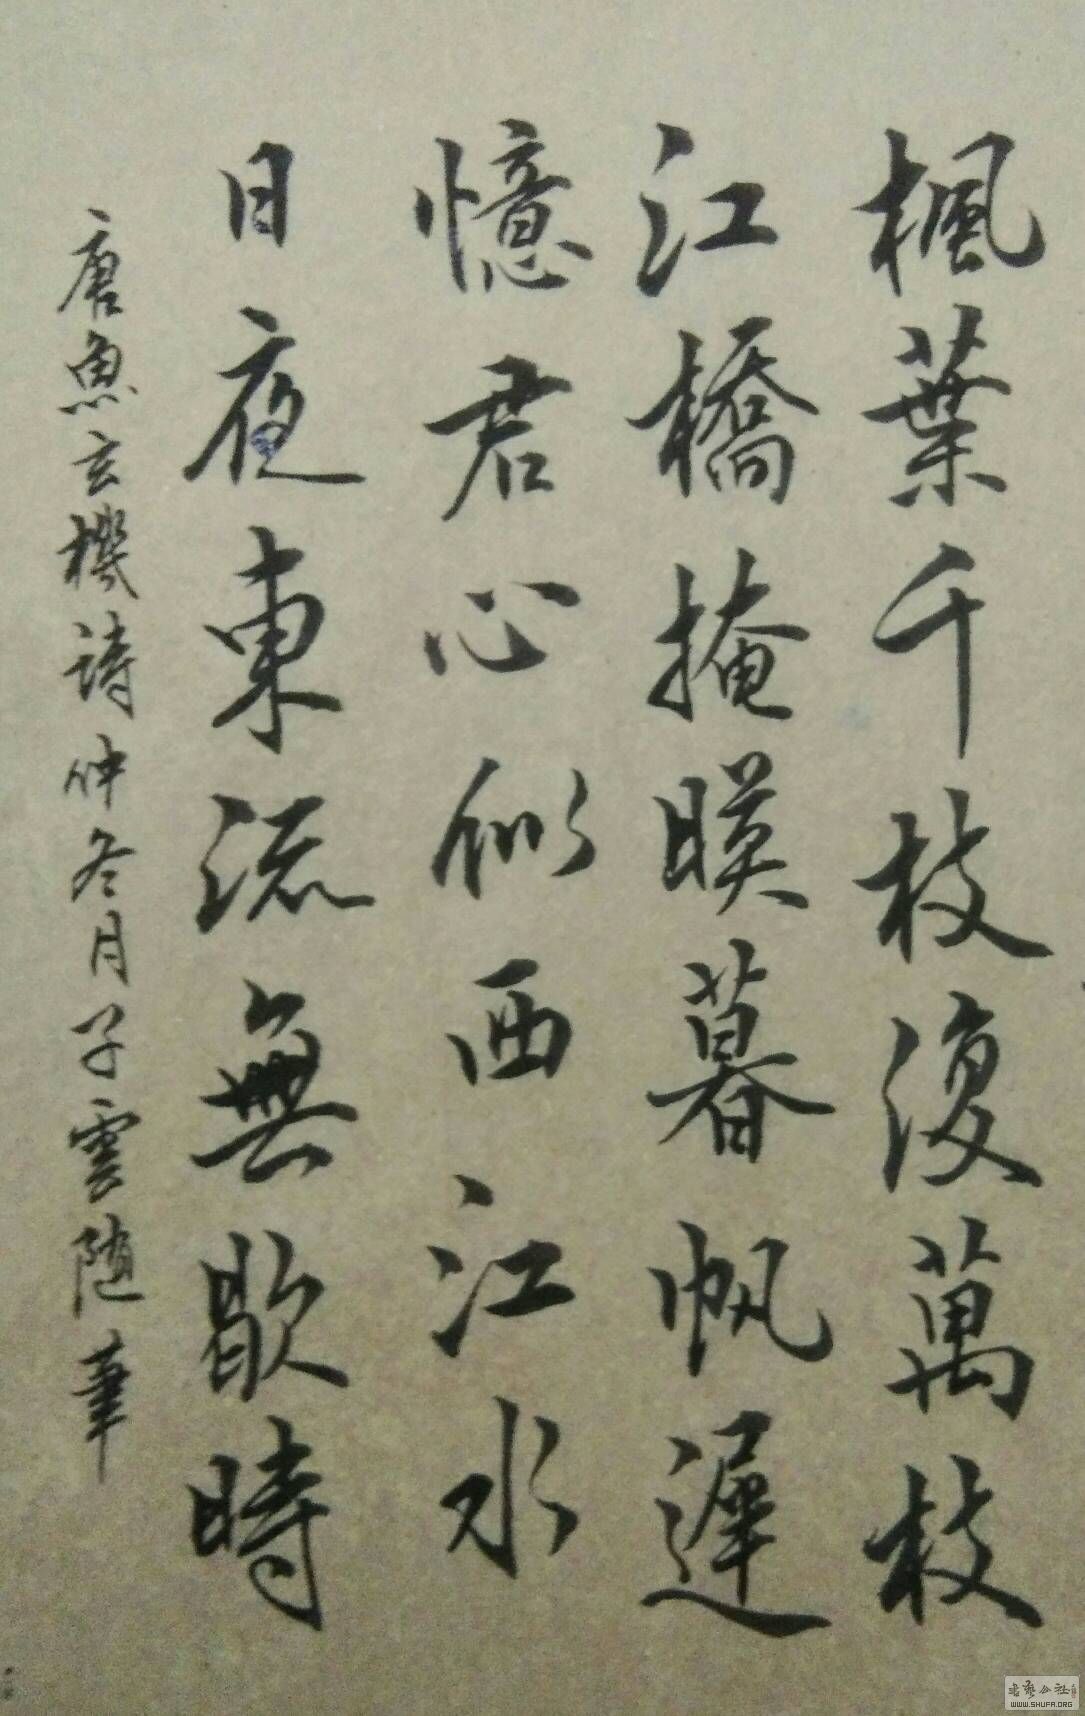 楓葉千枝復萬枝
江橋掩暎暮帆遲
憶君心似西江水
日夜東流無歇時
唐魚玄機詩仲冬月子雲随筆
书艺公社
WWW.SHUFA.ORG